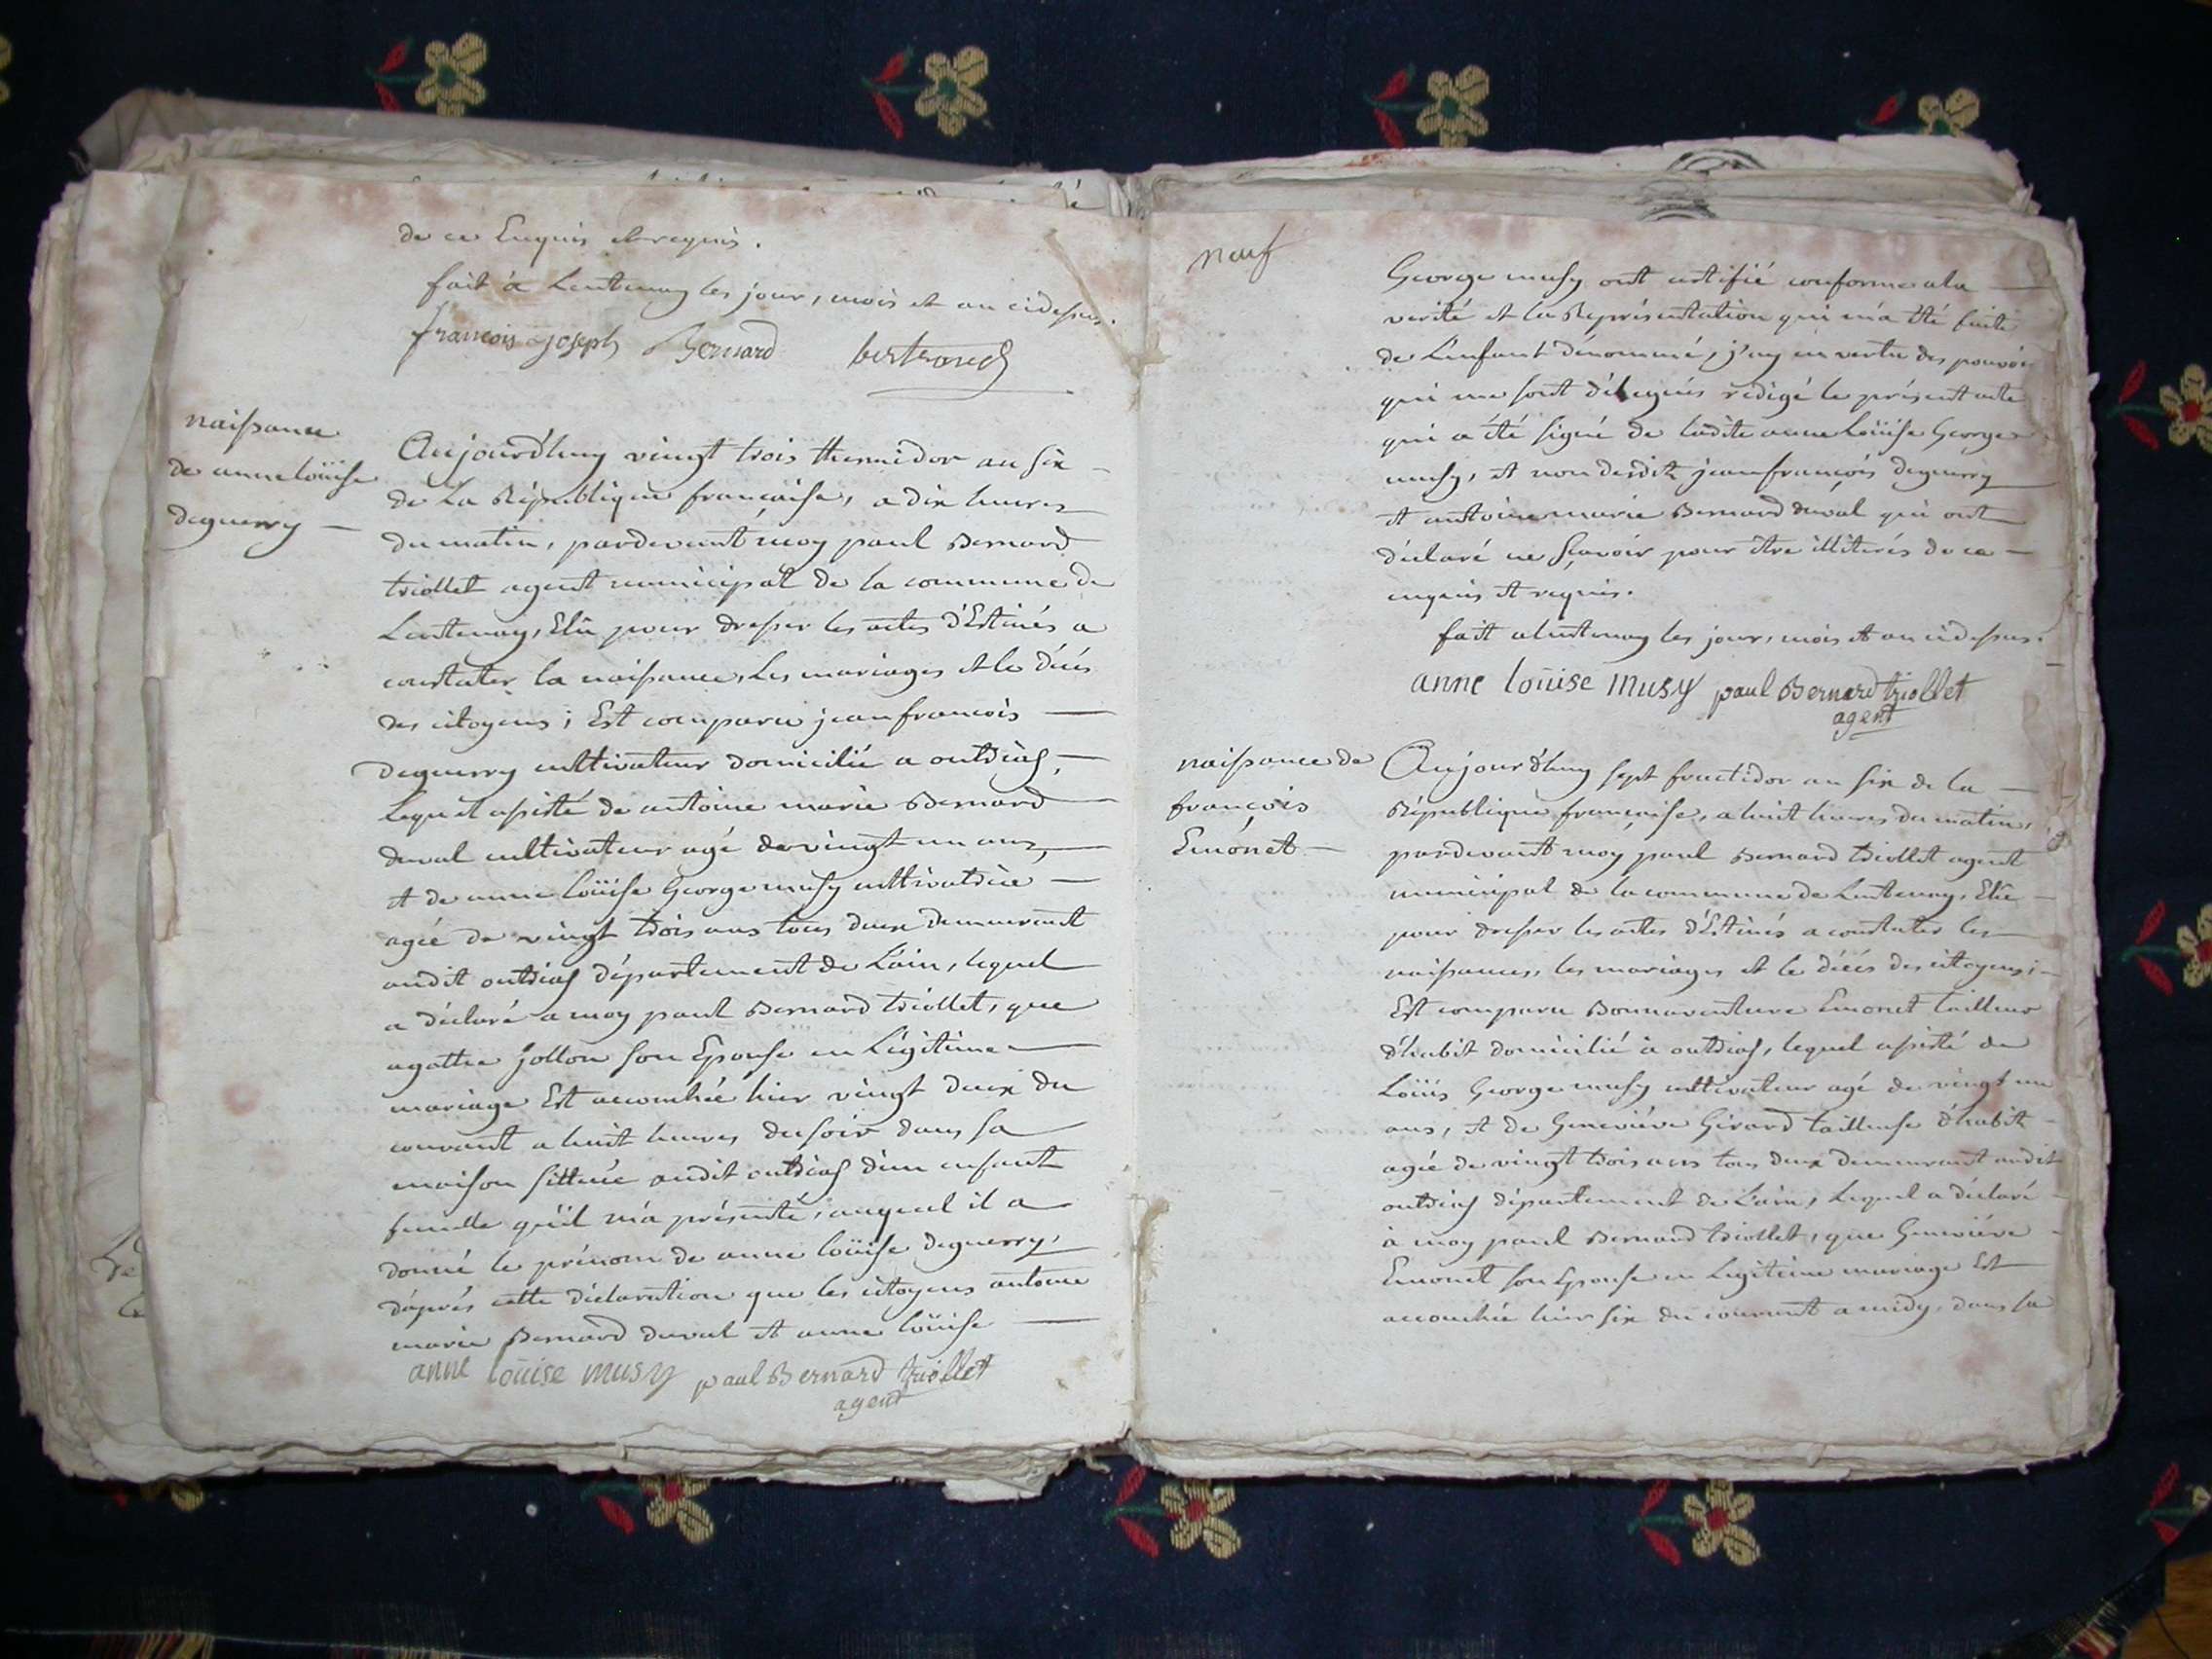 de ce Enquis et requis.
fait à Lentenay les jour, mois et an cidessus.
françois joseph Bernard bertrand
naissance
de anne loüise
deguerry
Aujourd'huy vingt trois thermidor an six
de La République françaïse, a dix heures
du matin, pardevant moy paul Bernard
triollet agent municipal de la commune de
Lentenay, Elû pour dresser les actes d'Estinés a
constater la naissance, les mariages et le décés
des citoyens; Est comparu jean francois
deguerry cultivateur domicilié a outriaf,
Lequel assisté de antoine marie Bernard
duval cultivateur agé de vingt un ans,
et de anne loüise George musy cultivatrice
agée de vingt trois ans tous deux demeurant
audit outriaf département de L'ain, lequel
a déclaré a moy paul Bernard triollet, que
agathe jollon son Epouse en Légitime
mariage Est accouchée hier vingt deux du
courant a huit heures du soir dans sa
maison sittuée audit outriaf d'un enfant
femelle qu'il m'a présenté, auquel il a
donné le prénom de anne loüise deguerry,
d'après cette déclaration que les citoyens antoine
marie Bernard duval et anne loüise
anne loüise musy paul Bernard triollet
agent
neuf
George musy ont certifié conforme a la
verité et la Représentation qui m'a été faite
de L'enfant dénommé, j'ay en vertu des pouvoir
qui me sont délegués redigé le présent acte
qui a été signé de ladite anne Loüise George
musy, et non desdits jean françois deguerry
et antoine marie Bernard duval qui ont
déclaré ne sçavoir pour être illiterés de ce
enquis et requis.
fait a lentenay les jour, mois et an cidessus.
anne loüise musy paul Bernard triollet
agent
naissance de
françois
Emónet
Aujourd'huy sept fructidor an six de la
République françaïse, a huit heures du matin,
pardevant moy paul Bernard triollet agent
municipal de la commune de Lentenay, Elû
pour dresser les actes d'Estinés a constater les
naissances, les mariages et le décés des citoyens;
Est comparu Bonnaventure Emonet tailleur
d'habit domicilié à outriaf, lequel assisté de
Loüis George musy cultivateur agé de vingt un
ans, et de Geneviéve Girard tailleuse d'habit
agée de vingt trois ans tous deux demeurant audit
outriaf département de L'ain, Lequel a déclaré
à moy paul Bernard triollet, que Geneviéve
Emonet son Epouse en Legitime mariage Est
accouchée hier six du courant a midy, dans sa